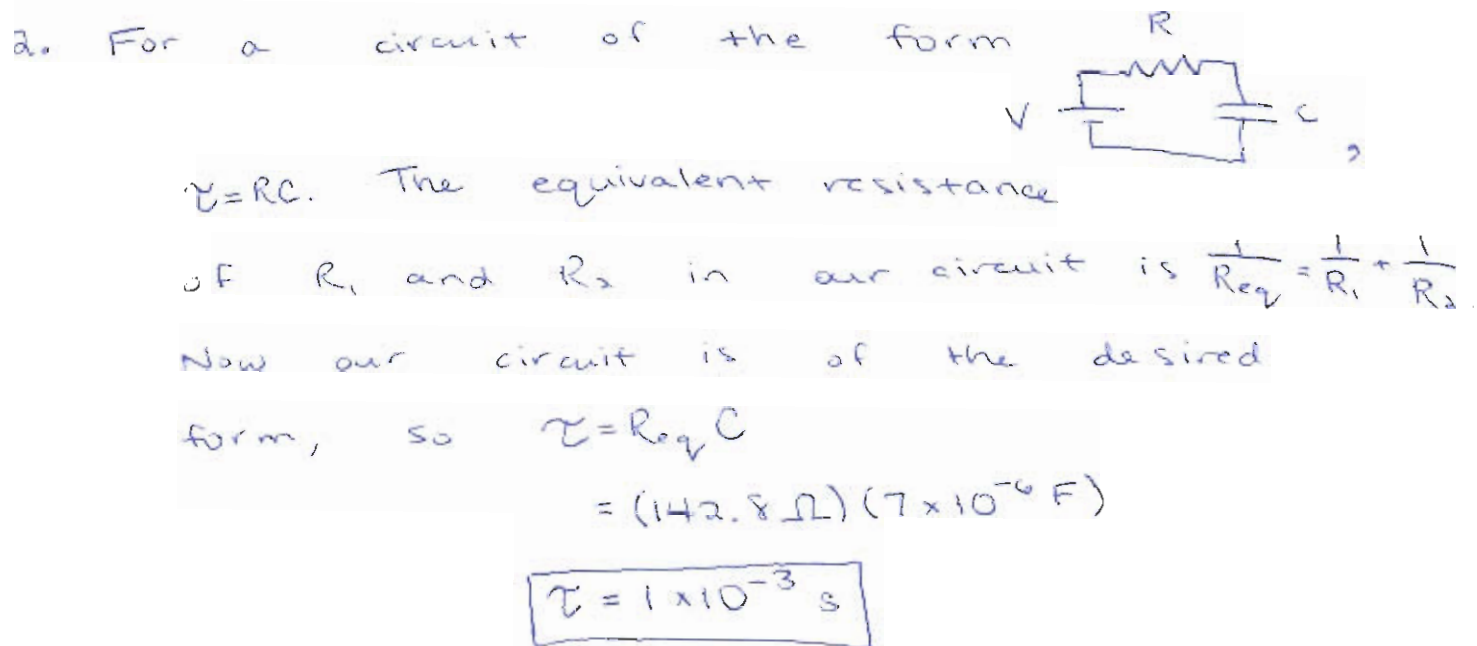 2. For a circuit of the form
R
V
C ,
τ=RC. The equivalent resistance
of R₁ and R₂ in our circuit is 1/Req = 1/R₁ + 1/R₂.
Now our circuit is of the desired
form, so τ=Req C
= (142.8 Ω) (7 x 10⁻⁶ F)
τ = 1 x10⁻³ s